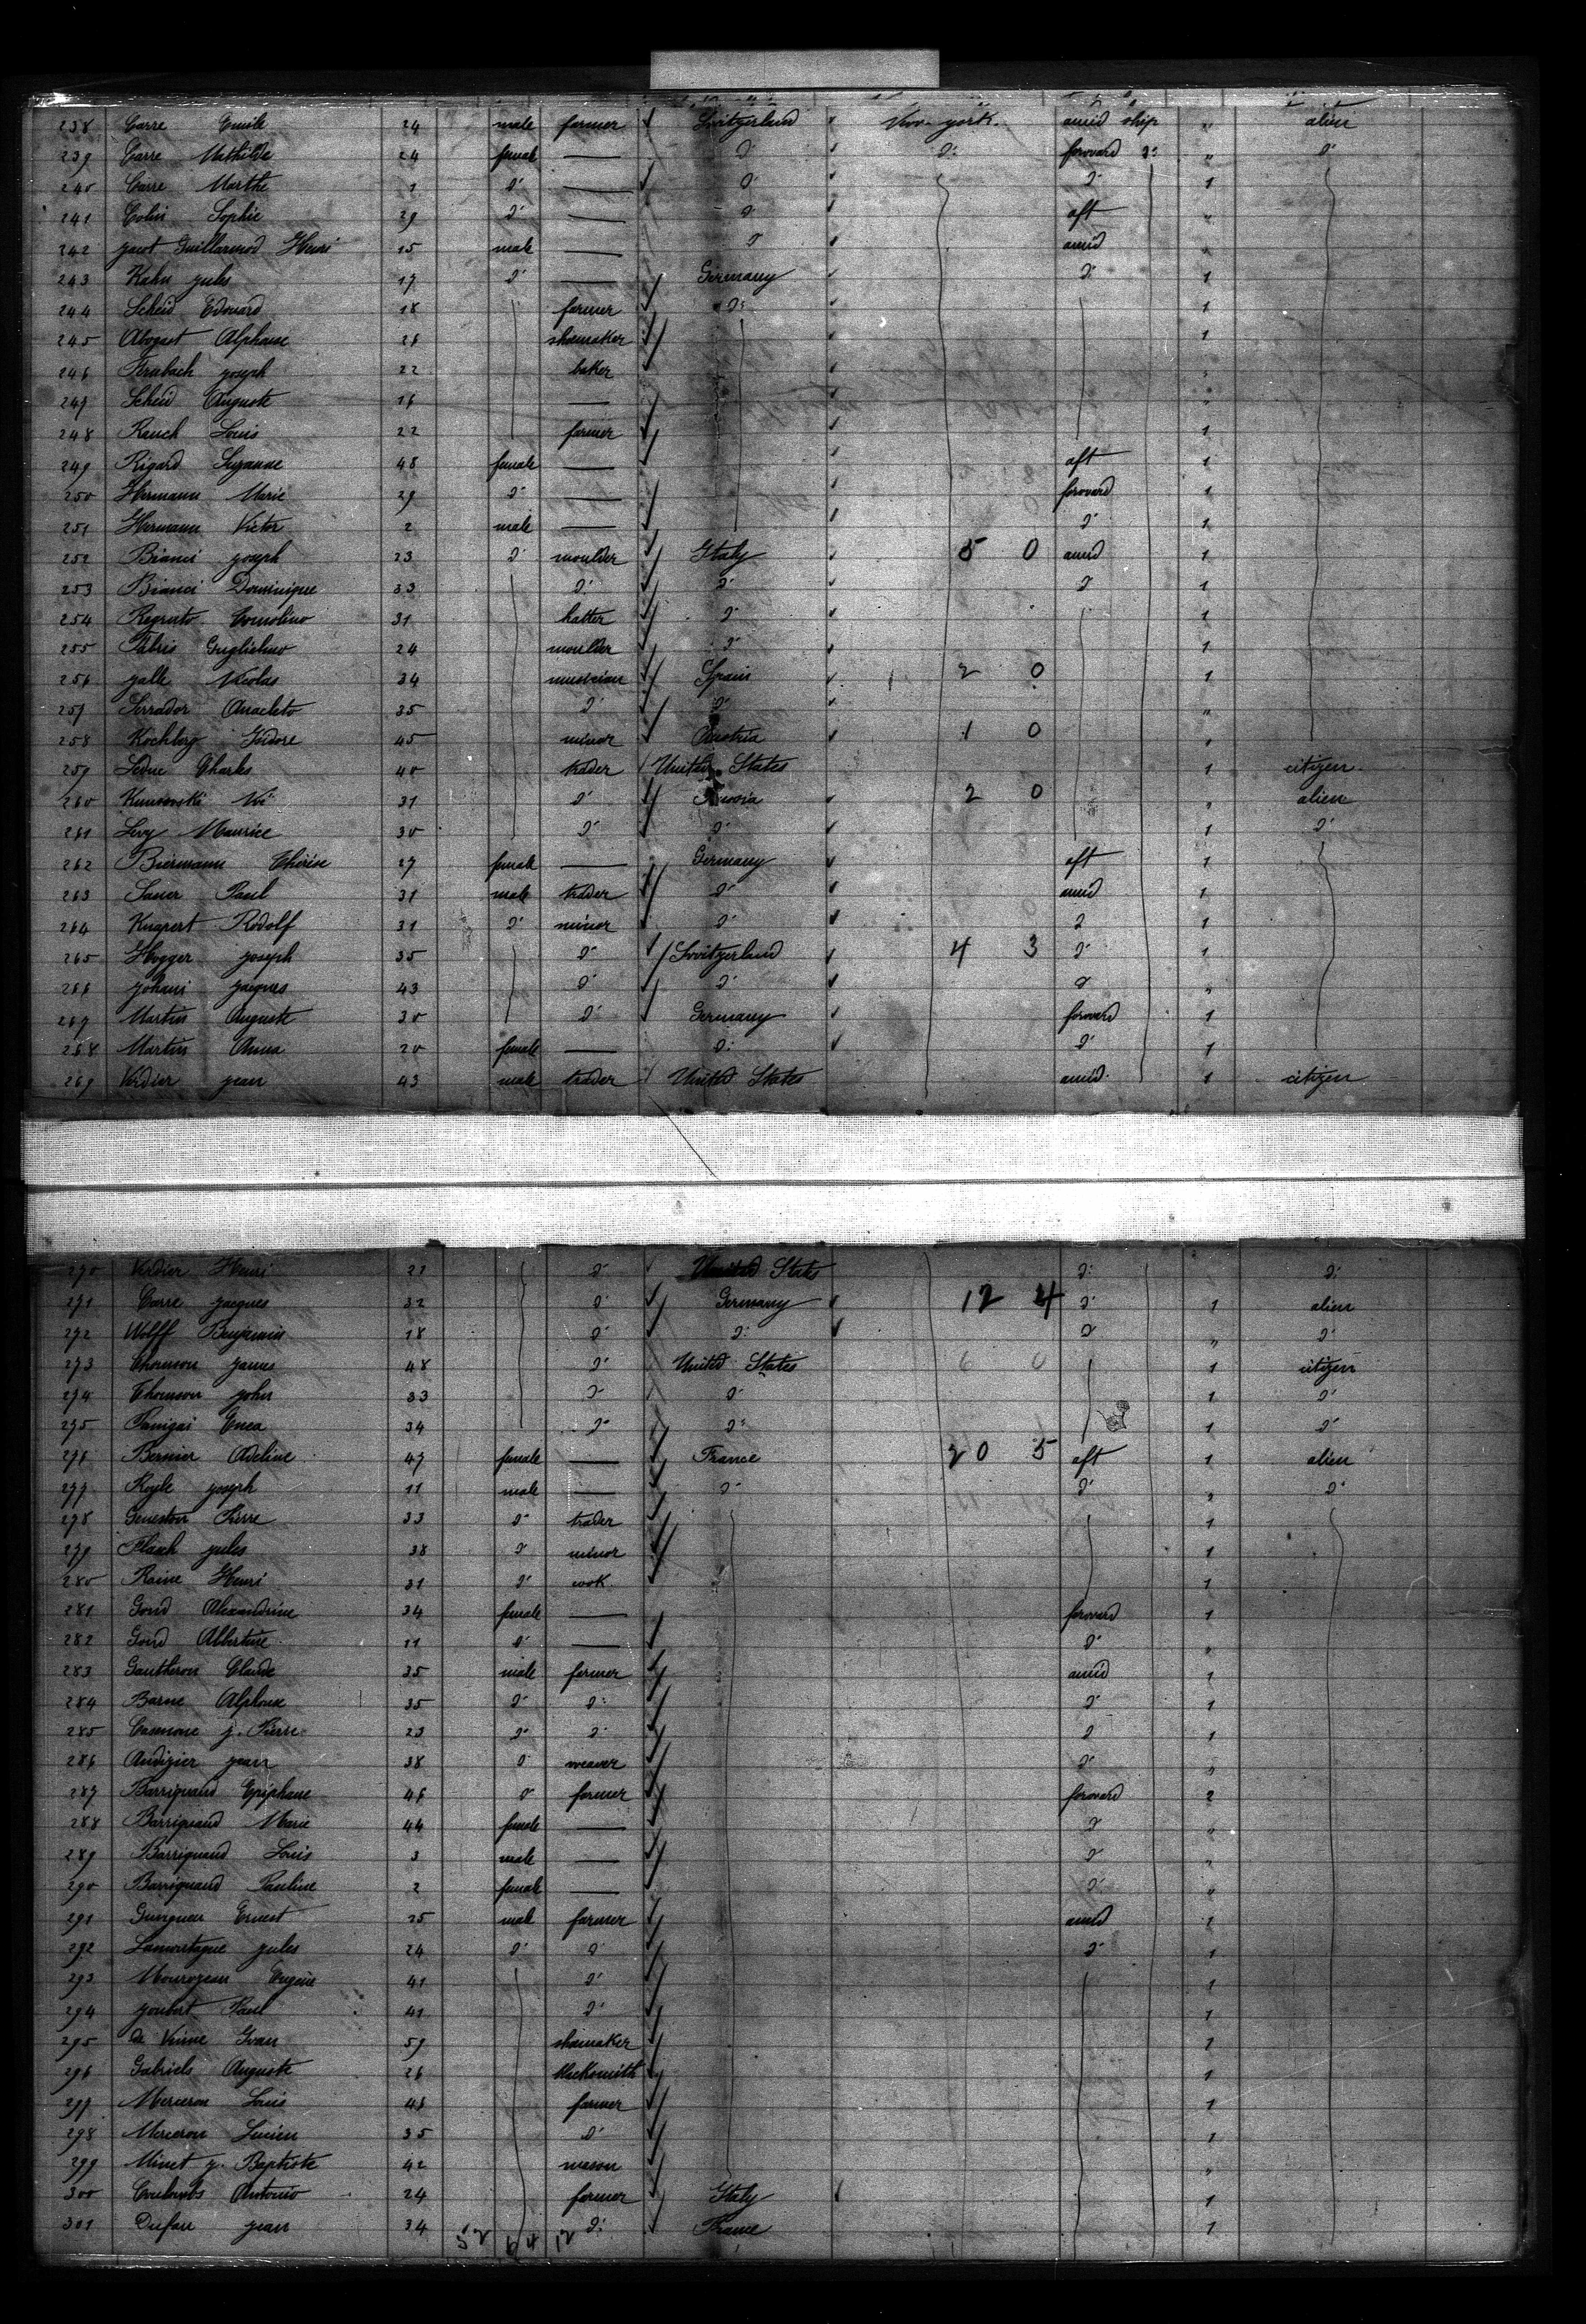 238 Carre Emile 24 male farmer Switzerland New-york. amid ship " alien
239 Carre Mathilde 24 female — d° d° forward d° " d°
240 Carre Marthe 1 d° — d° d° 1
241 Colin Sophie 29 d° — d° aft "
242 jacot Guillarmod Henri 15 male — d° amid "
243 Kahn jules 17 d° — Germany d° 1
244 Scheid Edouard 18 farmer d° 1
245 Abogast Alphonse 26 shoemaker 1
246 joseph 22 baker "
247 Scheid Auguste 16 — "
248 Rauch Louis 22 farmer 1
249 Rigard Suzanne 48 female — aft 1
250 Hermann Marie 29 d° — forward 1
251 Hermann Victor 2 male — d° 1
252 Bianci joseph 23 d° moulder Italy 5 0 amid 1
253 Bianci Dominique 33 d° d° d° 1
254 31 hatter d° 1
255 Fabris Guglielmo 24 moulder d° 1
256 jalle Nicolas 34 musician Spain 2 0 1
257 Serrador Anacleto 35 d° d° "
258 Isidore 45 minor Austria 1 0 "
259 Leduc Charles 40 trader United States 1 citizen
260 31 d° 2 0 " alien
261 Levy Maurice 30 d° d° 1 d°
262 Biermann Thérèse 27 female — Germany aft 1
263 Sauer Paul 31 male trader d° amid 1
264 Rodolf 31 d° minor d° d° 1
265 Hogger joseph 35 d° Switzerland 4 3 d° 1
266 johani jacques 43 d° d° d° "
267 Martin Auguste 30 d° Germany forward 1
268 Martin Anna 20 female — d° d° 1
269 Verdier jean 43 male trader United States amid 1 citizen
270 Verdier Henri 21 d° United States d° d°
271 Carre jacques 32 d° Germany 12 4 d° 1 alien
272 Wolff Benjamin 18 d° d° d° " d°
273 Thomson james 48 d° United States 6 0 1 citizen
274 Thomson john 33 d° d° 1 d°
275 Enea 34 d° d° 1 d°
276 Bernier Adeline 47 female — France 20 5 aft 1 alien
277 joseph 11 male — d° d° " d°
278 Geneston Pierre 33 d° trader 1
279 Flach jules 38 d° minor 1
280 Raine Henri 31 d° cook 1
281 Gond Alexandrine 34 female — forward 1
282 Gond Albertine 11 d° — d° "
283 Gautheron Claude 35 male farmer amid 1
284 Barne Alphonse 35 d° d° d° 1
285 j. Pierre 23 d° d° d° 1
286 Audigier jean 38 d° weaver d° "
287 Barriquand Epiphane 46 d° farmer forward 2
288 Barriquand Marie 44 female — d° "
289 Barriquand Louis 3 male — d° "
290 Barriquand Pauline 2 female — d° "
291 Ernest 25 male farmer amid 1
292 Lamontagne jules 24 d° d° d° 1
293 Eugène 41 d° 1
294 joubert Paul 41 d° 1
295 de 59 shoemaker 1
296 Gabriels Auguste 26 blacksmith 1
297 Merceron Louis 48 farmer 1
298 Merceron Lucien 35 d° 1
299 Minet j. Baptiste 42 mason "
300 Antonio 24 farmer Italy 1
301 Dufau jean 34 d° France 1
52 64 12